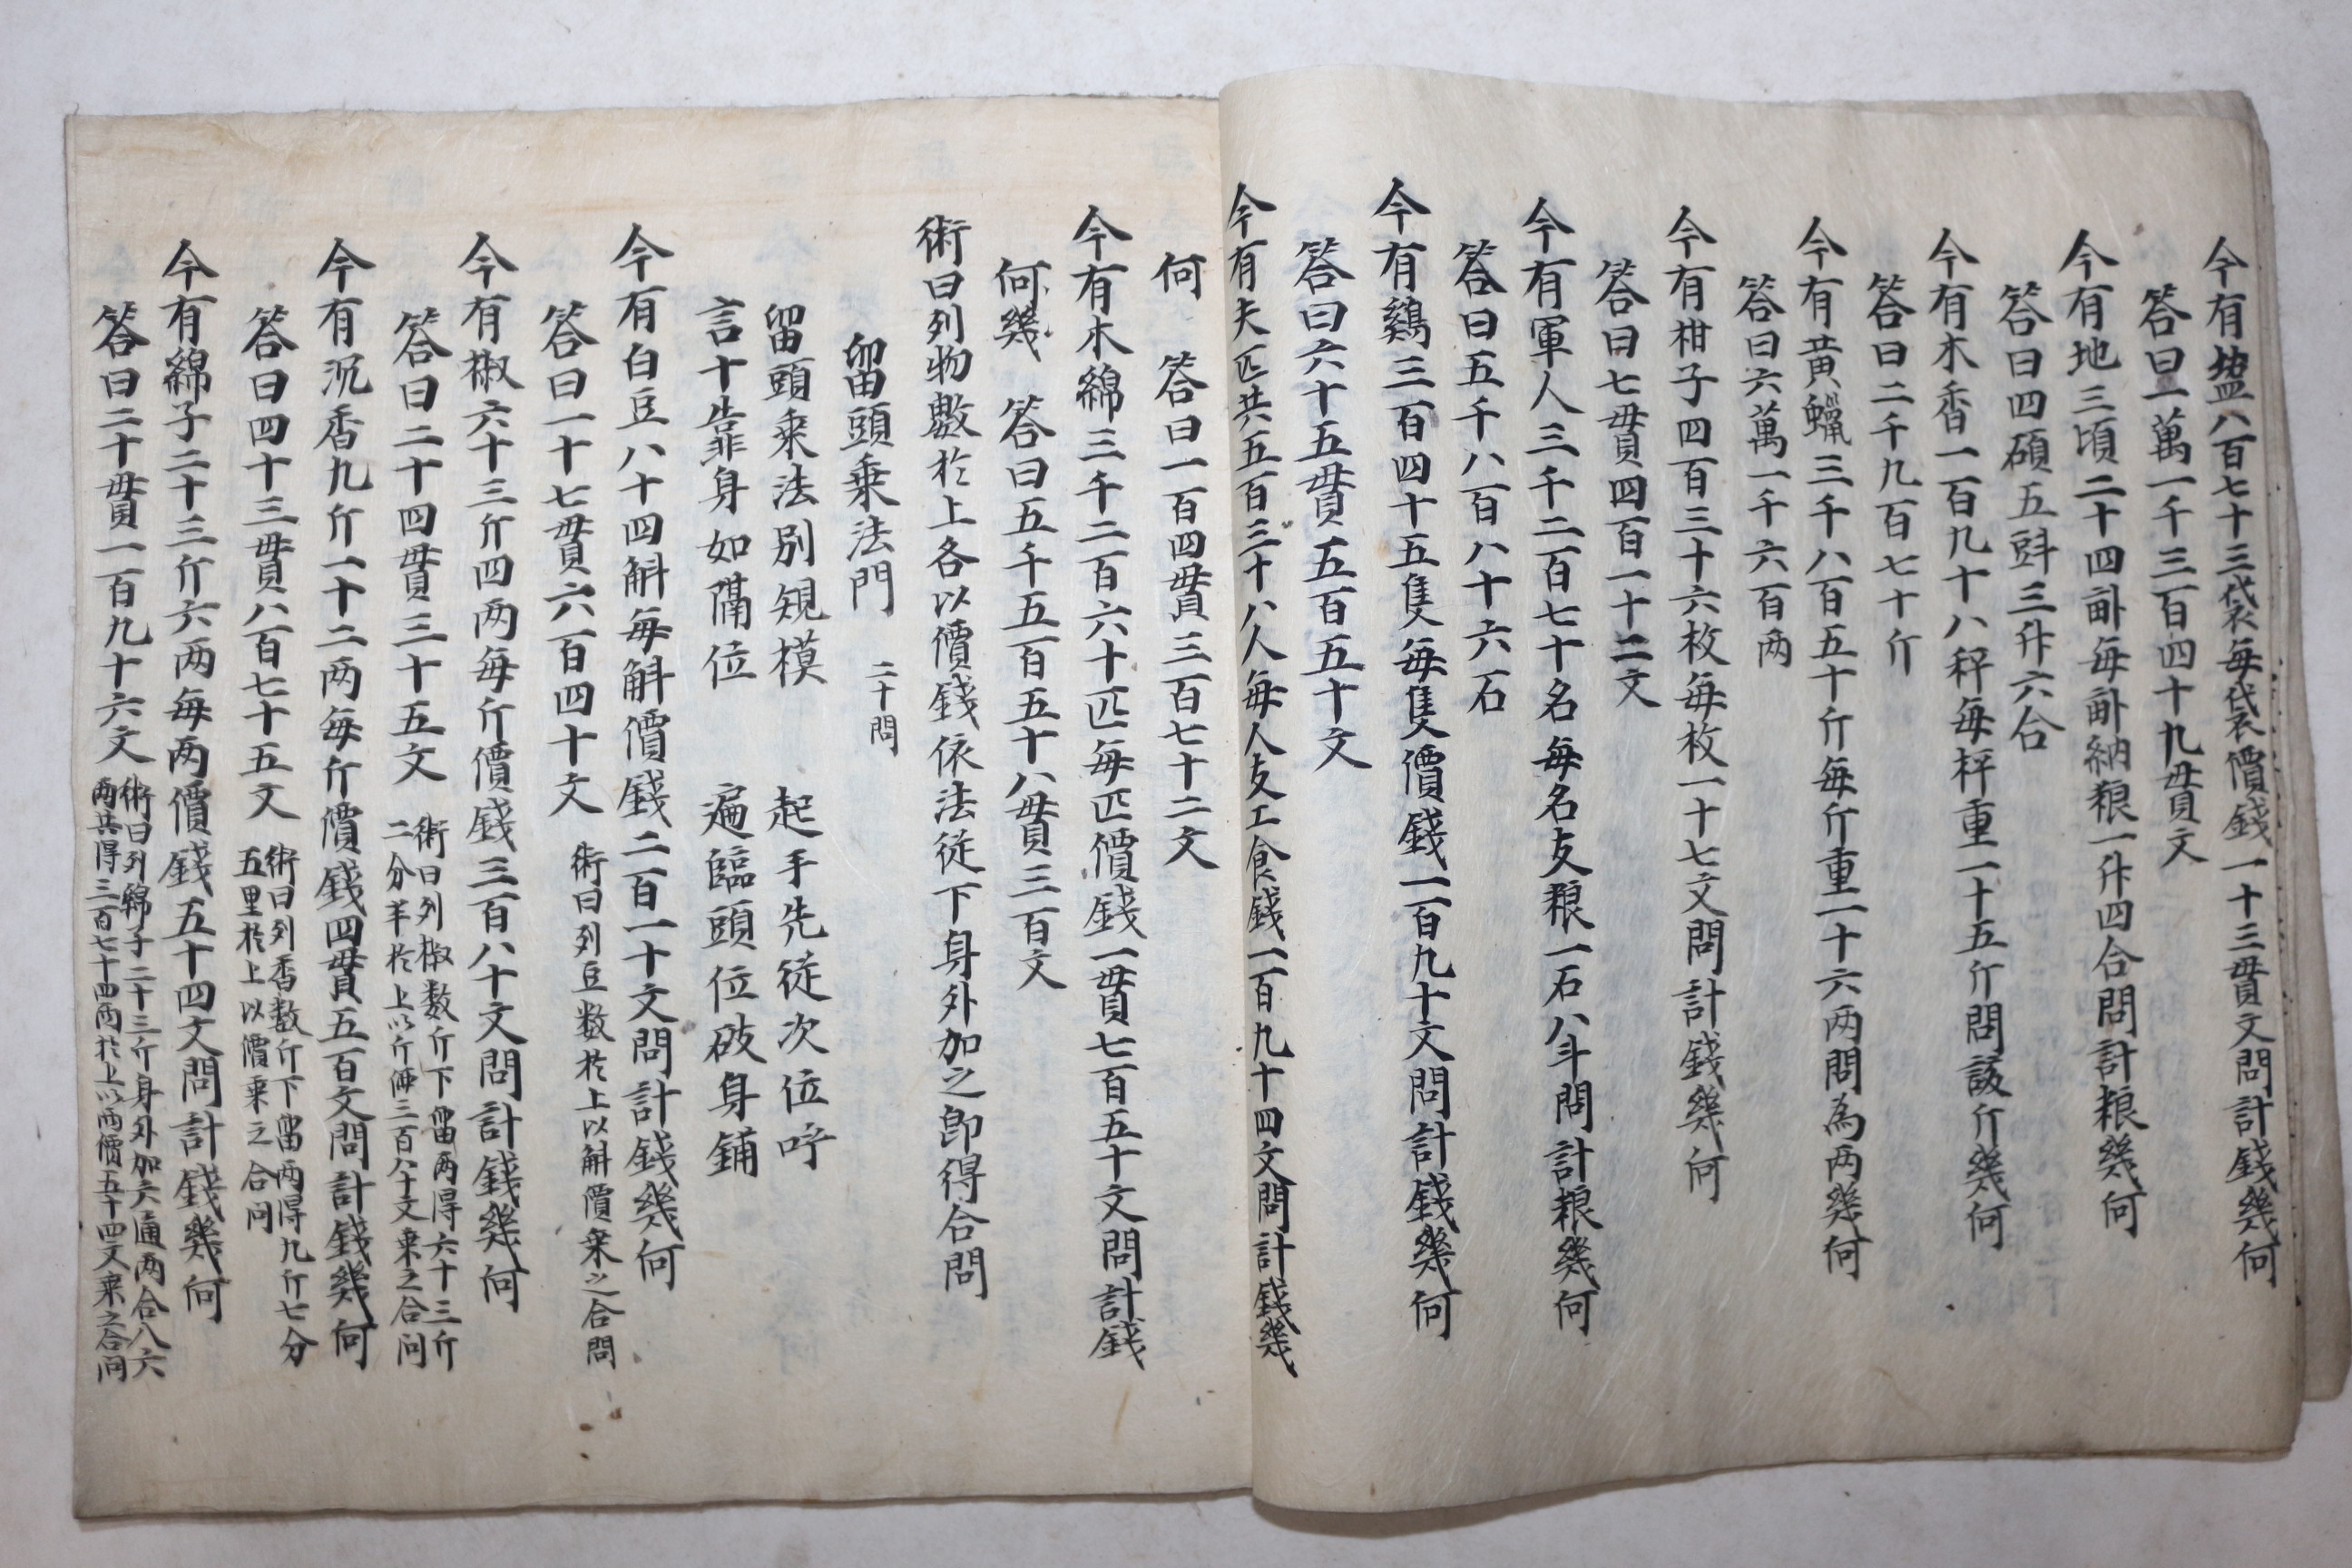 今有塩八百七十三袋每袋價錢一十三貫文問計錢幾何
答曰一萬一千三百四十九貫文
今有地三頃二十四畝每畝納粮一升四合問計粮幾何
答曰四碩五㪷三升六合
今有木香一百九十八秤每秤重一十五斤問該斤幾何
答曰二千九百七十斤
今有黃蠟三千八百五十斤每斤重一十六两問為两幾何
答曰六萬一千六百两
今有柑子四百三十六枚每枚一十七文問計錢幾何
答曰七貫四百一十二文
今有軍人三千二百七十名每名支粮一石八斗問計粮幾何
答曰五千八百八十六石
今有鷄三百四十五隻每隻價錢一百九十文問計錢幾何
答曰六十五貫五百五十文
今有夫匠共五百三十八人每人支工食錢一百九十四文問計錢幾
何　答曰一百四貫三百七十二文
今有木綿三千二百六十匹每匹價錢一貫七百五十文問計錢
何幾　答曰五千五百五十八貫三百文
術曰列物數於上各以價錢依法從下身外加之即得合問
留頭乗法門　二十問
留頭乗法別規模　起手先從次位呼
言十靠身如隔位　遍臨頭位破身鋪
今有白豆八十四斛每斛價錢二百一十文問計錢幾何
答曰一十七貫六百四十文　術曰列豆数於上以斛價乗之合問
今有椒六十三斤四两每斤價錢三百八十文問計錢幾何
答曰二十四貫三十五文　術曰列椒数斤下留两得六十三斤
二分半於上以斤価三百八十文乗之合问
今有沉香九斤一十二两每斤價錢四貫五百文問計錢幾何
答曰四十三貫八百七十五文　術曰列香数斤下留两得九斤七分
五里於上以價乗之合问
今有綿子二十三斤六两每两價錢五十四文問計錢幾何
答曰二十貫一百九十六文　術曰列綿子二十三斤身外加六通两合八六
两共得三百七十四两於上以两價五十四文乗之合问